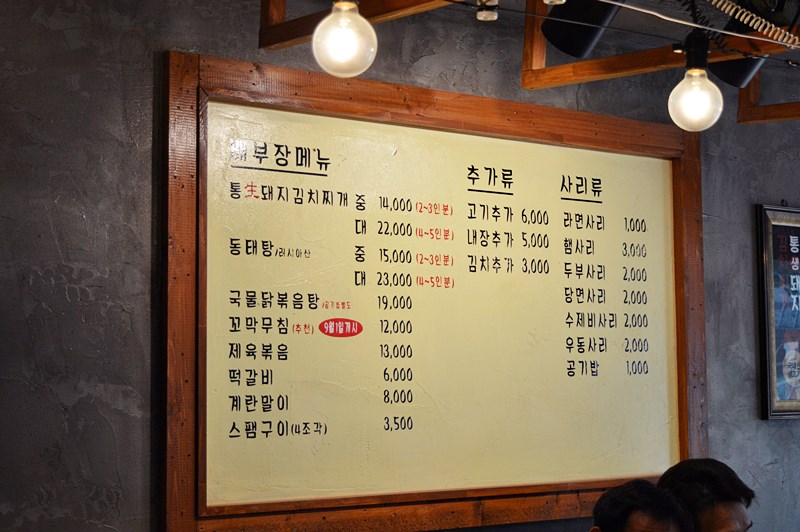 부장메뉴
통生돼지김치찌개 중 14,000 (2~3인분)
대 22,000 (4~5인분)
동태탕/러시아산 중 15,000 (2~3인분)
대 23,000 (4~5인분)
국물닭볶음탕 /공기밥별도 19,000
꼬막무침 (추천) 9월1일개시 12,000
제육볶음 13,000
떡갈비 6,000
계란말이 8,000
스팸구이 (4조각) 3,500
추가류
고기추가 6,000
내장추가 5,000
김치추가 3,000
사리류
라면사리 1,000
햄사리 3,000
두부사리 2,000
당면사리 2,000
수제비사리 2,000
우동사리 2,000
공기밥 1,000
통생돼지